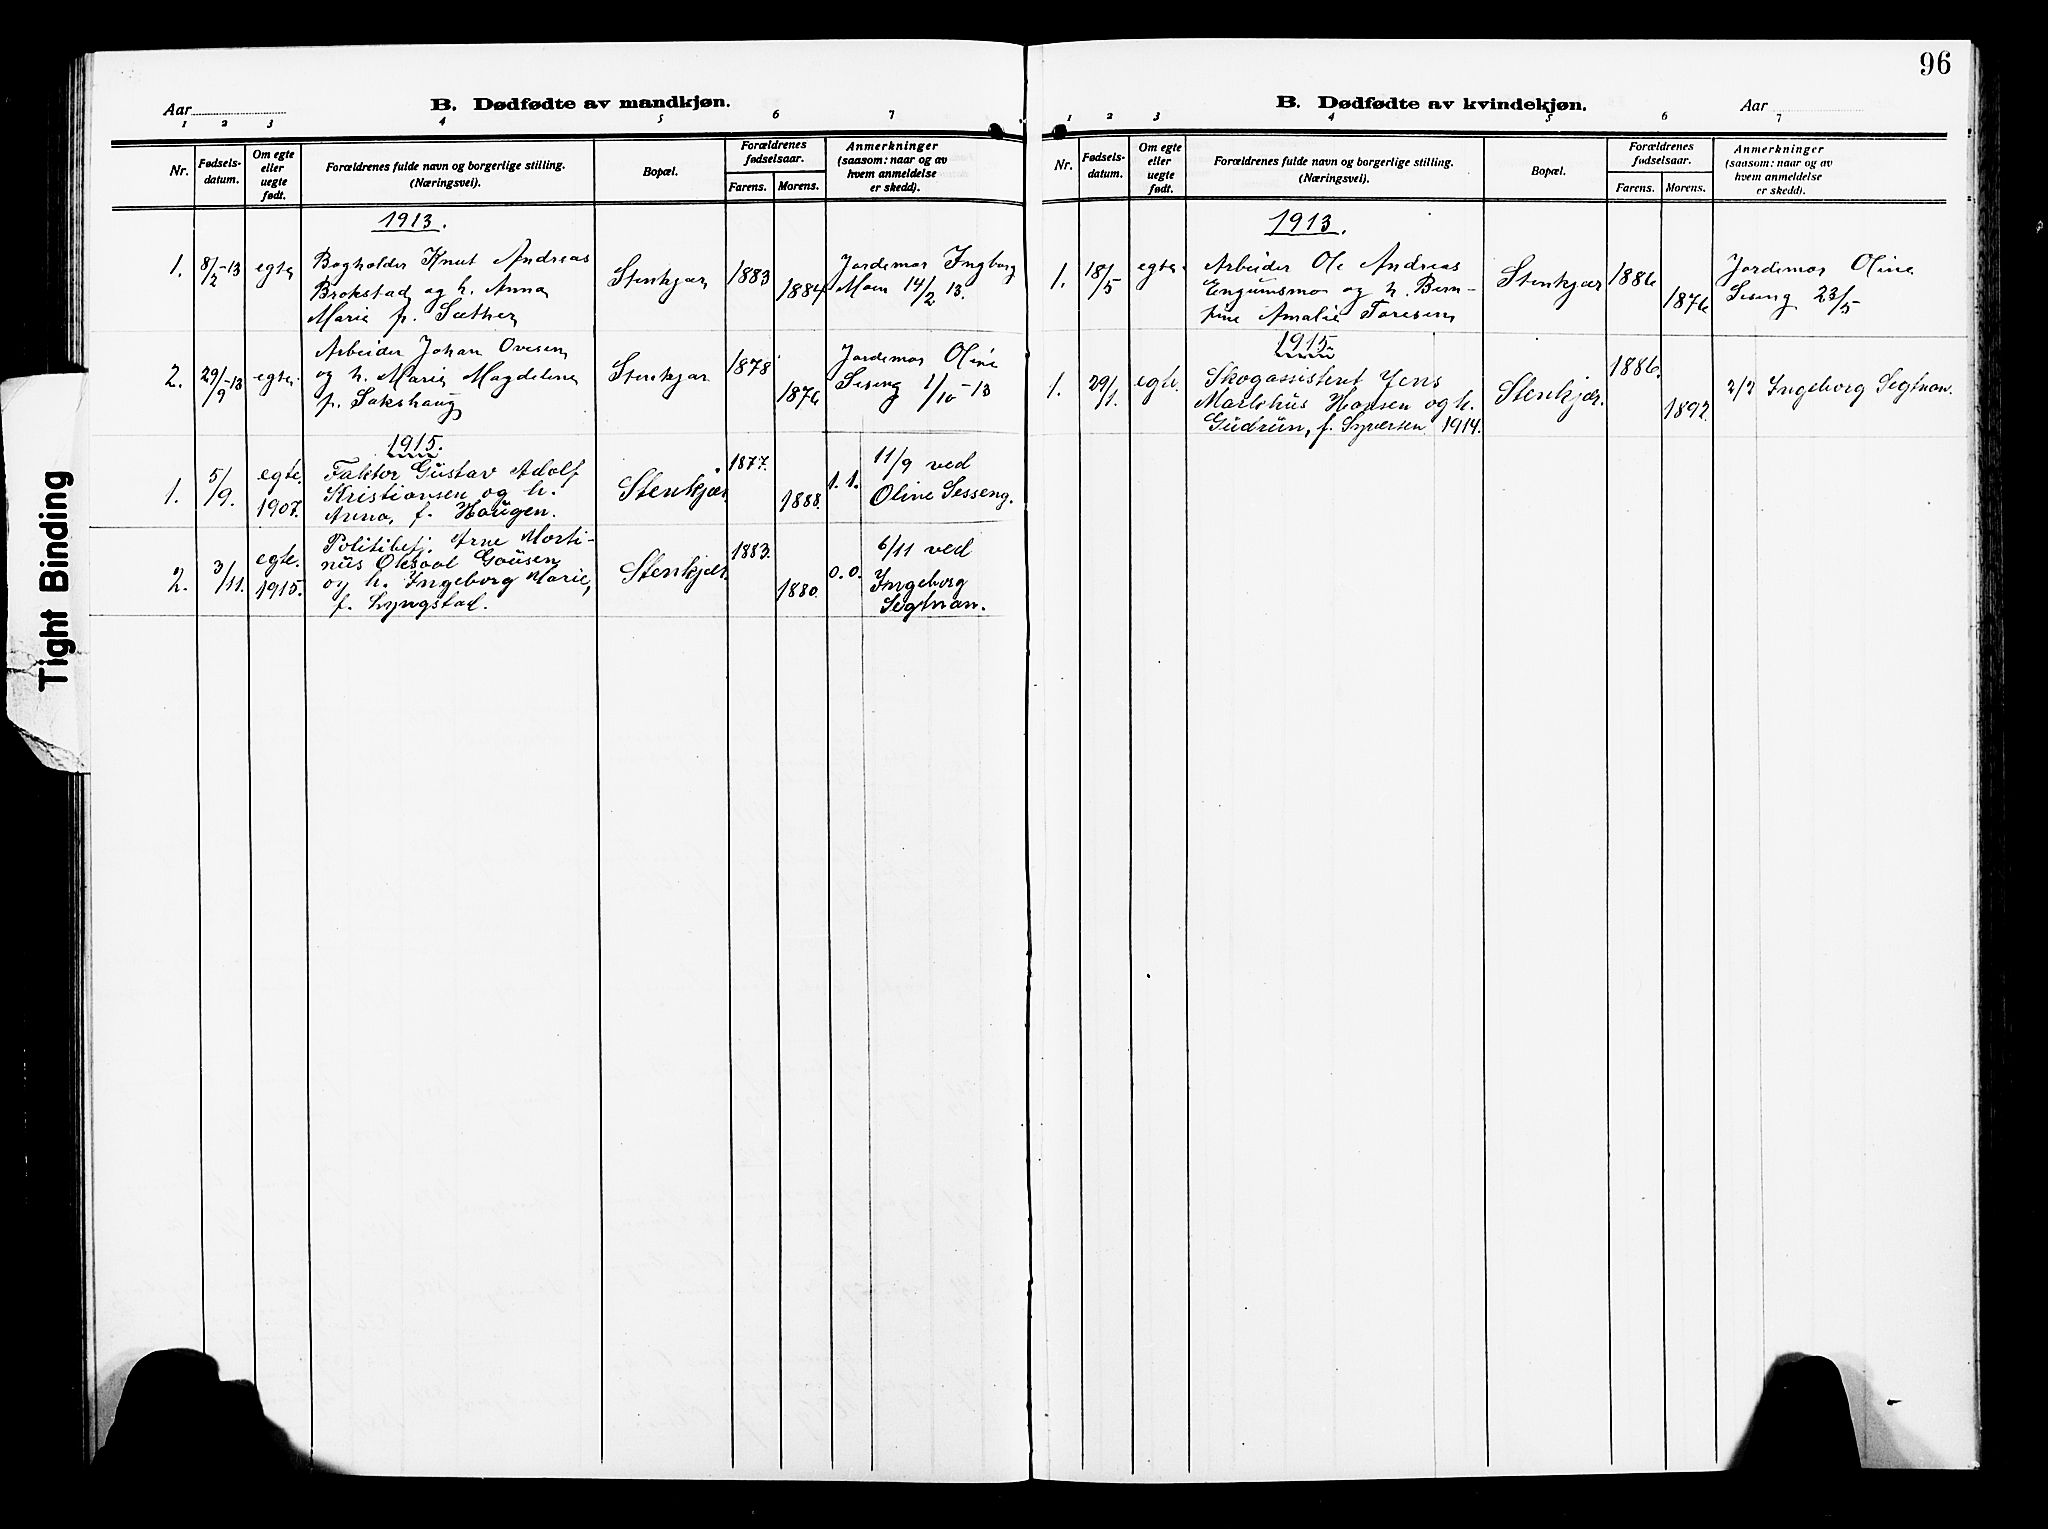 96
Aar
B. Dødfødte av mandkjøn.
1 2 3 4 5 6 7
Nr.
Fødsels-
datum.
Om egte
eller
uegte
født.
Forældrenes fulde navn og borgerlige stilling.
(Næringsvei).
Bopæl.
Forældrenes
fødselsaar.
Farens. Morens.
Anmerkninger
(saasom: naar og av
hvem anmeldelse
er skedd).
1913.
1. 8/2-13 egte Bogholder Knut Andreas Stenkjær 1883 1884 Jordemor Ingborg
Brokstad og h. Anna Moen 14/2 13.
Marie f. Sæther
2. 29/9-13 egte Arbeider Johan Ovesen Stenkjær 1878 1876 Jordemor Oline
og h. Marie Magdelene Seseng 1/10-13
f. Sakshaug
1915.
1. 5/9. egte. Faktor Gustav Adolf Stenkjær. 1877. 1888. 1. 1. 11/9 ved
1907. Kristiansen og h. Oline Sesseng.
Anna, f. Haugen.
2. 3/11. egte. Politibetj. Arne Morti- Stenkjær. 1883. 1880. 0. 0. 6/11 ved
1915. nus Olesøl Ingeborg
og h. Ingeborg Marie, Segtnan.
f. Lyngstad.
B. Dødfødte av kvindekjøn.
Aar
1 2 3 4 5 6 7
Nr.
Fødsels-
datum.
Om egte
eller
uegte
født.
Forældrenes fulde navn og borgerlige stilling.
(Næringsvei).
Bopæl.
Forældrenes
fødselsaar.
Farens. Morens.
Anmerkninger
(saasom: naar og av
hvem anmeldelse
er skedd).
1913.
1. 18/5 egte Arbeider Ole Andreas Stenkjær 1886 1876 Jordemor Oline
Engumsmo og h. Bern- Seseng 23/5
tine Amalie Toresen
1915.
1. 29/1. egte. Skogassistent Jens Stenkjær. 1886. 1892. 2/2 Ingeborg Segtnan.
Markhus Hansen og h.
Gudrun, f. Syversen 1914.
Tight Binding